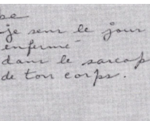 je sens le jour
enfermé
dans le sarcop
de ton corps.